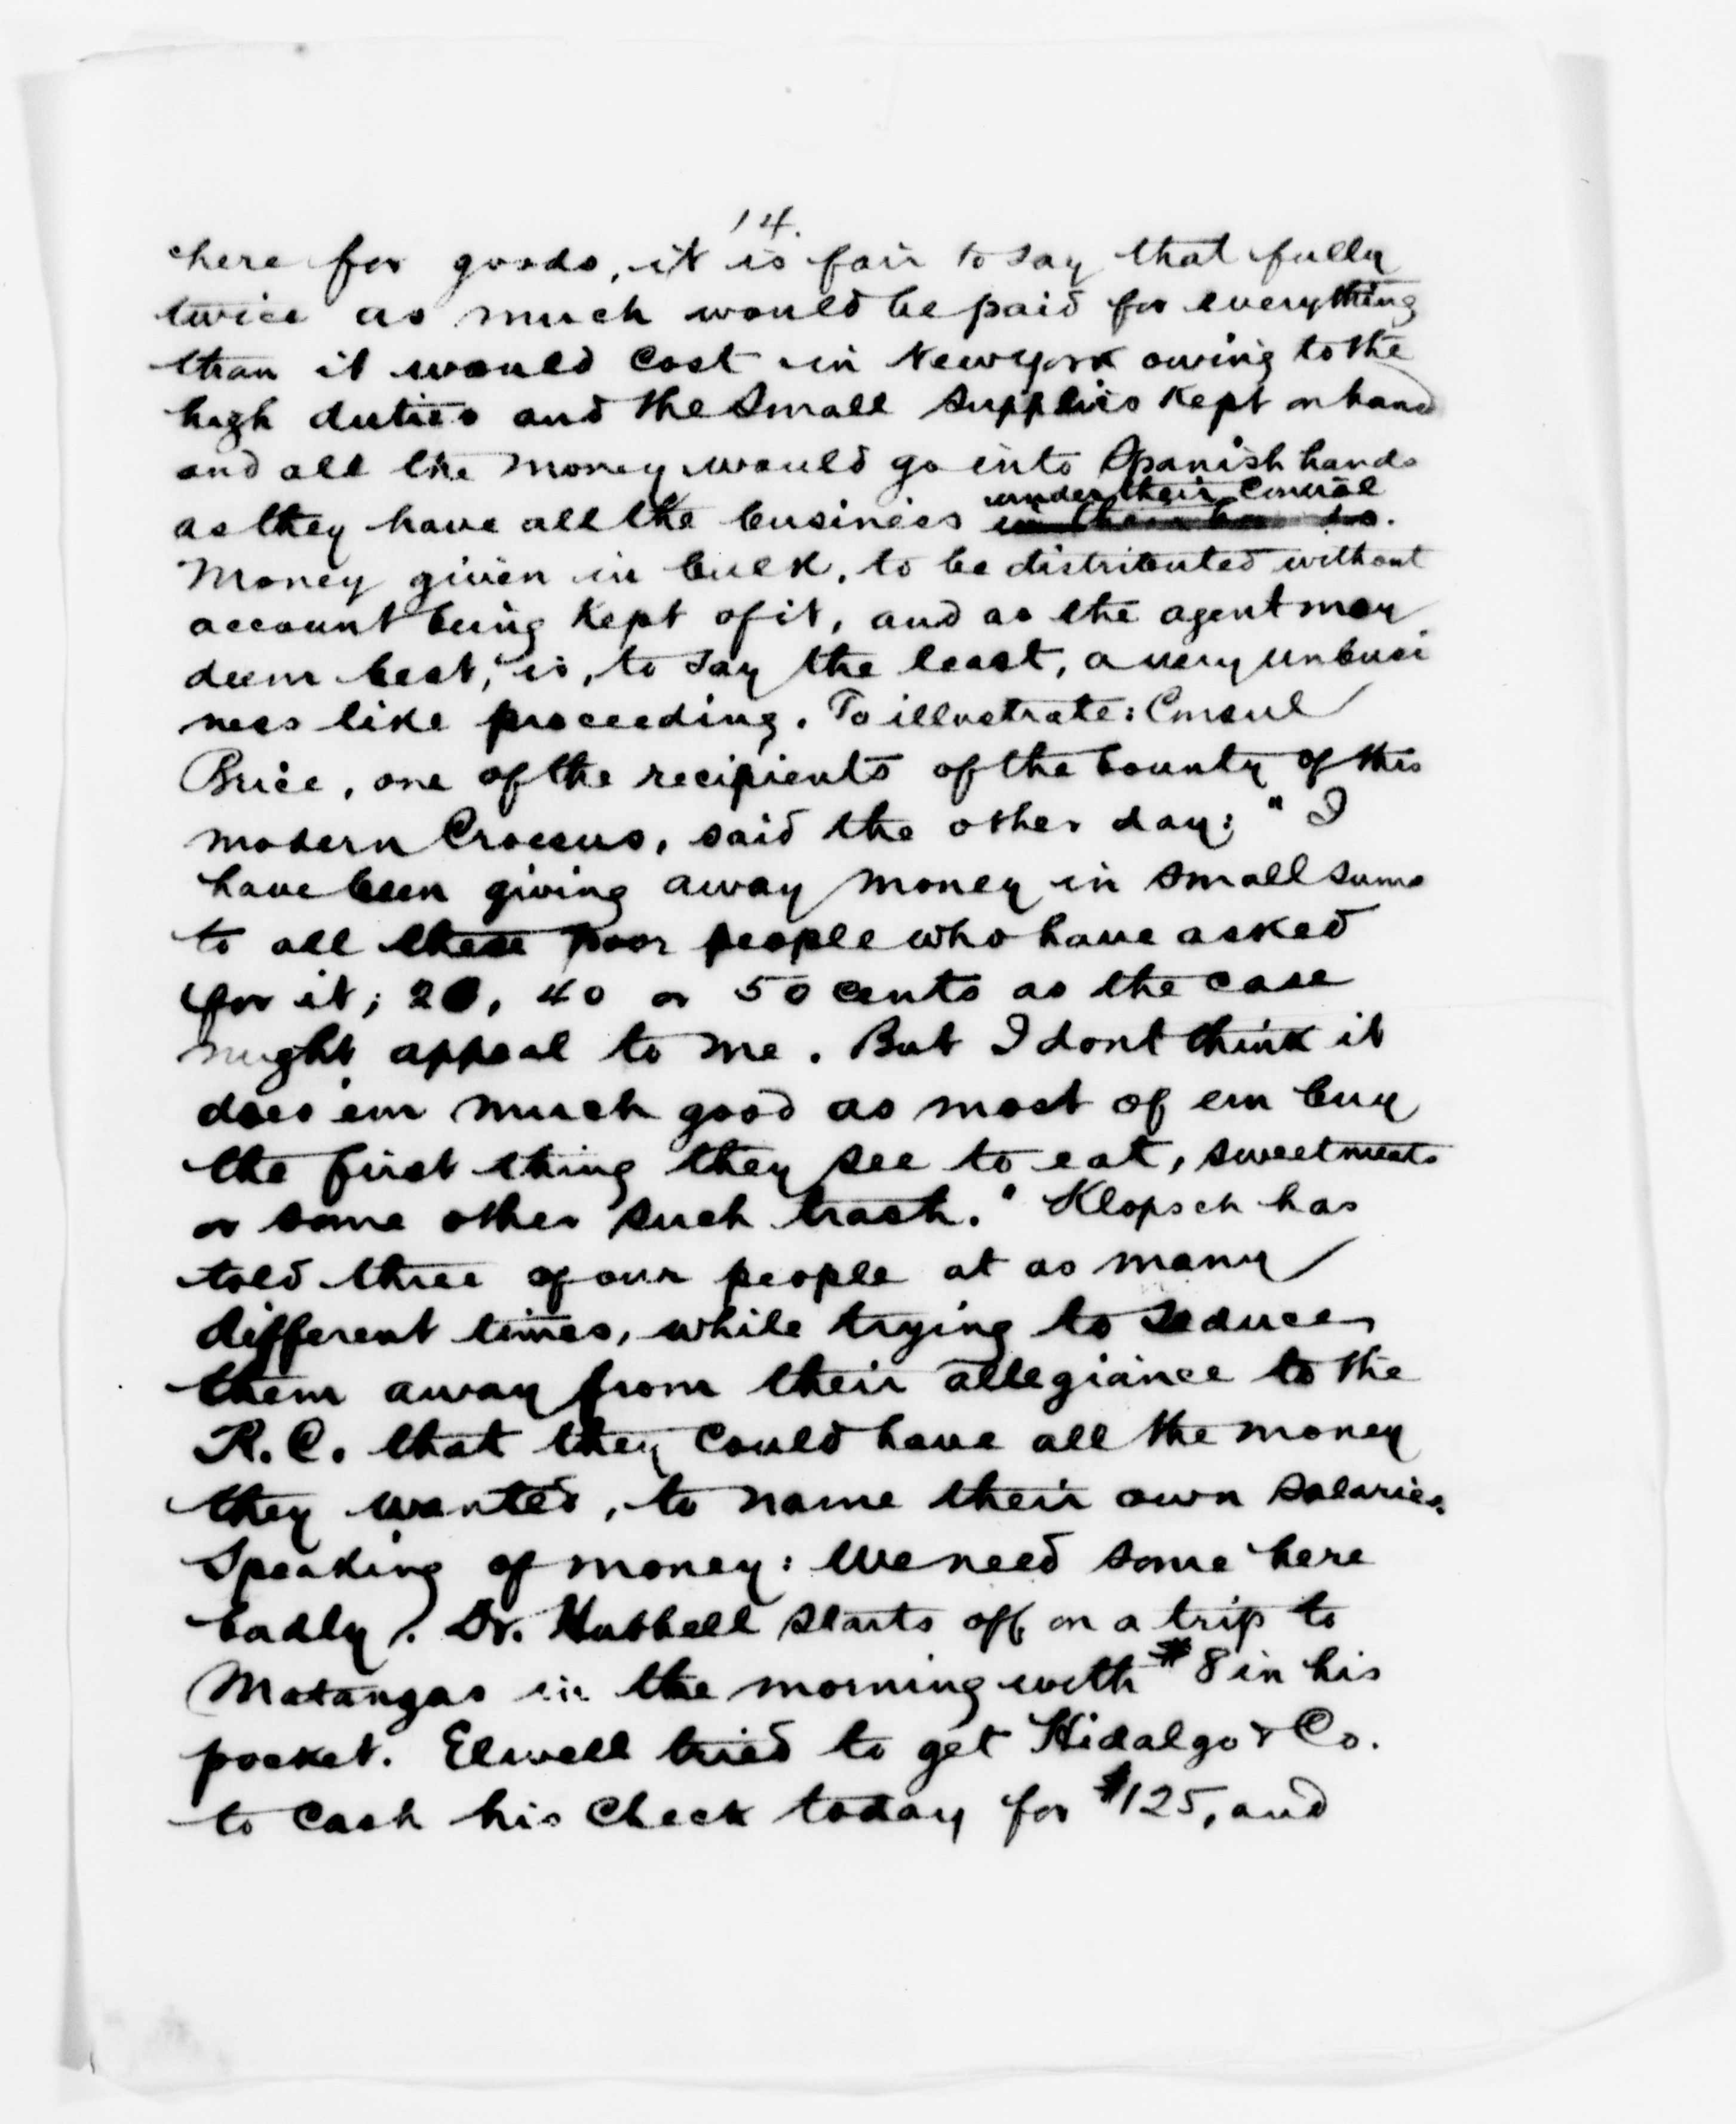 14.
here for goods, it is fair to say that fully
twice as much would be paid for everything
than it would cost in New York owing to the
high duties and the small supplies kept on hand
and all the money would go into Spanish hands
under their control
as they have all the business in their hands.
Money given in bulk, to be distributed without
account being kept of it, and as the agent may
deem best, is, to say the least, a very unbusi
ness like proceeding. To illustrate: Consul
Brice, one of the recipients of the bounty of this
modern Croesus, said the other day; "I
have been giving away money in small sums
to all these poor people who have asked
for it; 20, 40 or 50 cents as the case
might appeal to me. But I dont think it
does 'em much good as most of em buy
the first thing they see to eat, sweetmeats
or some other such trash." Klopsch has
told three of our people at as many
different times, while trying to seduce
them away from their allegiance to the
R.C. that they could have all the money
they wanted, to name their own salaries.
Speaking of money: We need some here
badly. Dr. Hubbell starts off on a trip to
Matanzas in the morning with $8 in his
pocket. Elwell tried to get Hidalgo & Co.
to cash his check today for $125, and